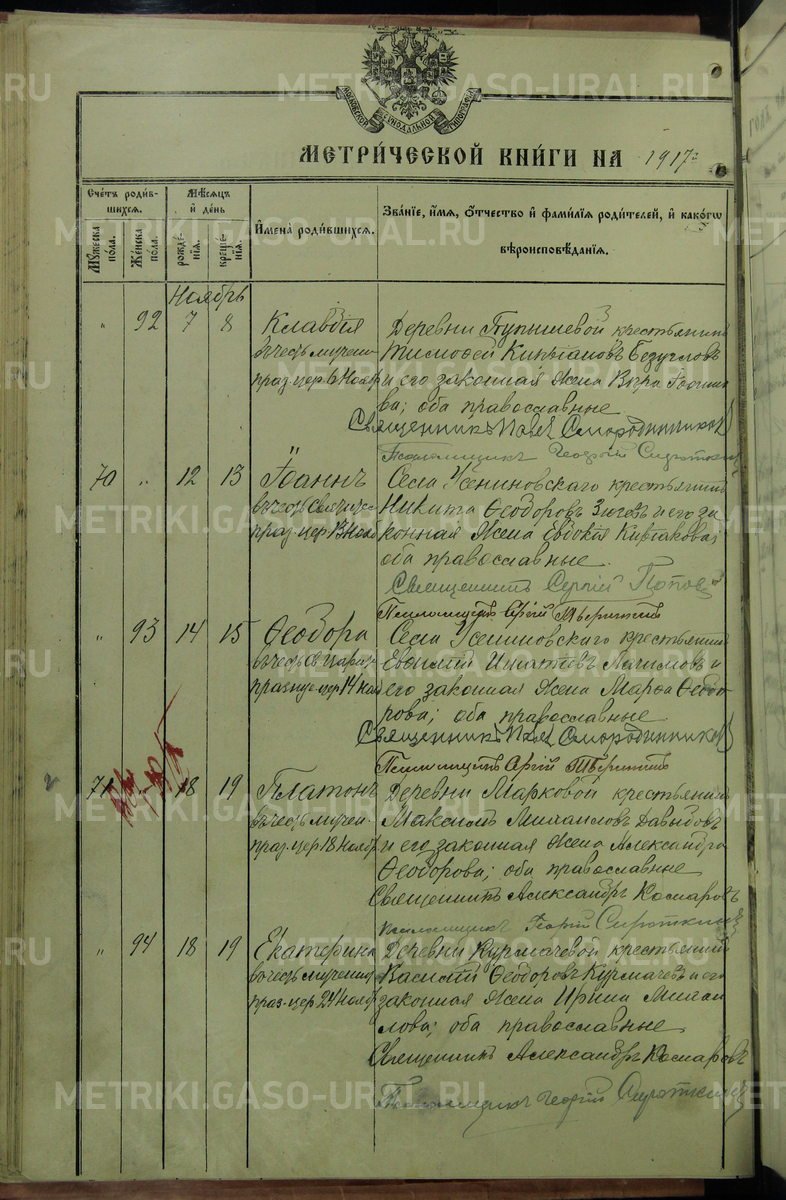 МОСКОВСКОЙ СѴНОДАЛЬНОЙ ТИПОГРАФІИ
МЕТРИ́ЧЕСКОЙ КНИ́ГИ НА 1917 г
Сче́тъ роди́вшихся.
Му́жеска по́ла.
Же́нска по́ла.
Мѣ́сяцъ и҆ де́нь
рожде́нїѧ.
креще́нїѧ.
И҆мена̀ роди́вшихся.
Зва́нїе, и҆́мя, ѻ҆́тчество и҆ фами́лїя роди́телей, и҆ како́гѡ вѣроисповѣ́данїѧ.
Ноябрь
" 92 7 8 Клавдія
въ честь мучени-
праз. цер. 6 Нояб
Деревни Пупышевой крестьянинъ
Тимофей Кипріановъ Безугловъ
и его законная жена Вѣра
ва; оба православные
Священникъ Павелъ Смородинниковъ
Псаломщикъ Георгій Сироткинъ
70 " 12 13 Іоаннъ
въ честь
праз. цер. 13 Нояб
Села Усениновскаго крестьянинъ
Никита Ѳеодоровъ Зюзевъ и его за
конная жена Евдокія
оба православные.
Священникъ Сергій Поповъ
Псаломщикъ Сергій
" 93 14 15 Ѳеодора
въ честь Св. цариц.
празднуе. цер. 14 Ноя
Села Усениновскаго крестьянинъ
Евѳимій Игнатіевъ и
его законная жена Марѳа Ѳеодо-
рова; оба православные
Священникъ Павелъ Смородинниковъ
Псаломщикъ Сергій
71 " 18 19 Платонъ
въ честь мучен.
праз. цер. 18 Ноябр
Деревни Марковой крестьянинъ
Максимъ Михаиловъ Давыдовъ
и его законная жена Александра
Ѳеодорова; оба православные
Священникъ Александръ Комаровъ
Псаломщикъ Георгій Сироткинъ
" 94 18 19 Екатерина
въ честь мучениц.
праз. цер. 24 Нояб
Деревни Курмачевой крестьянинъ
Василій Ѳеодоровъ Курмачевъ и его
законная жена Ирина Михаи
лова; оба православные
Священникъ Александръ Комаровъ
Псаломщикъ Георгій Сироткинъ
METRIKI.GASO-URAL.RU